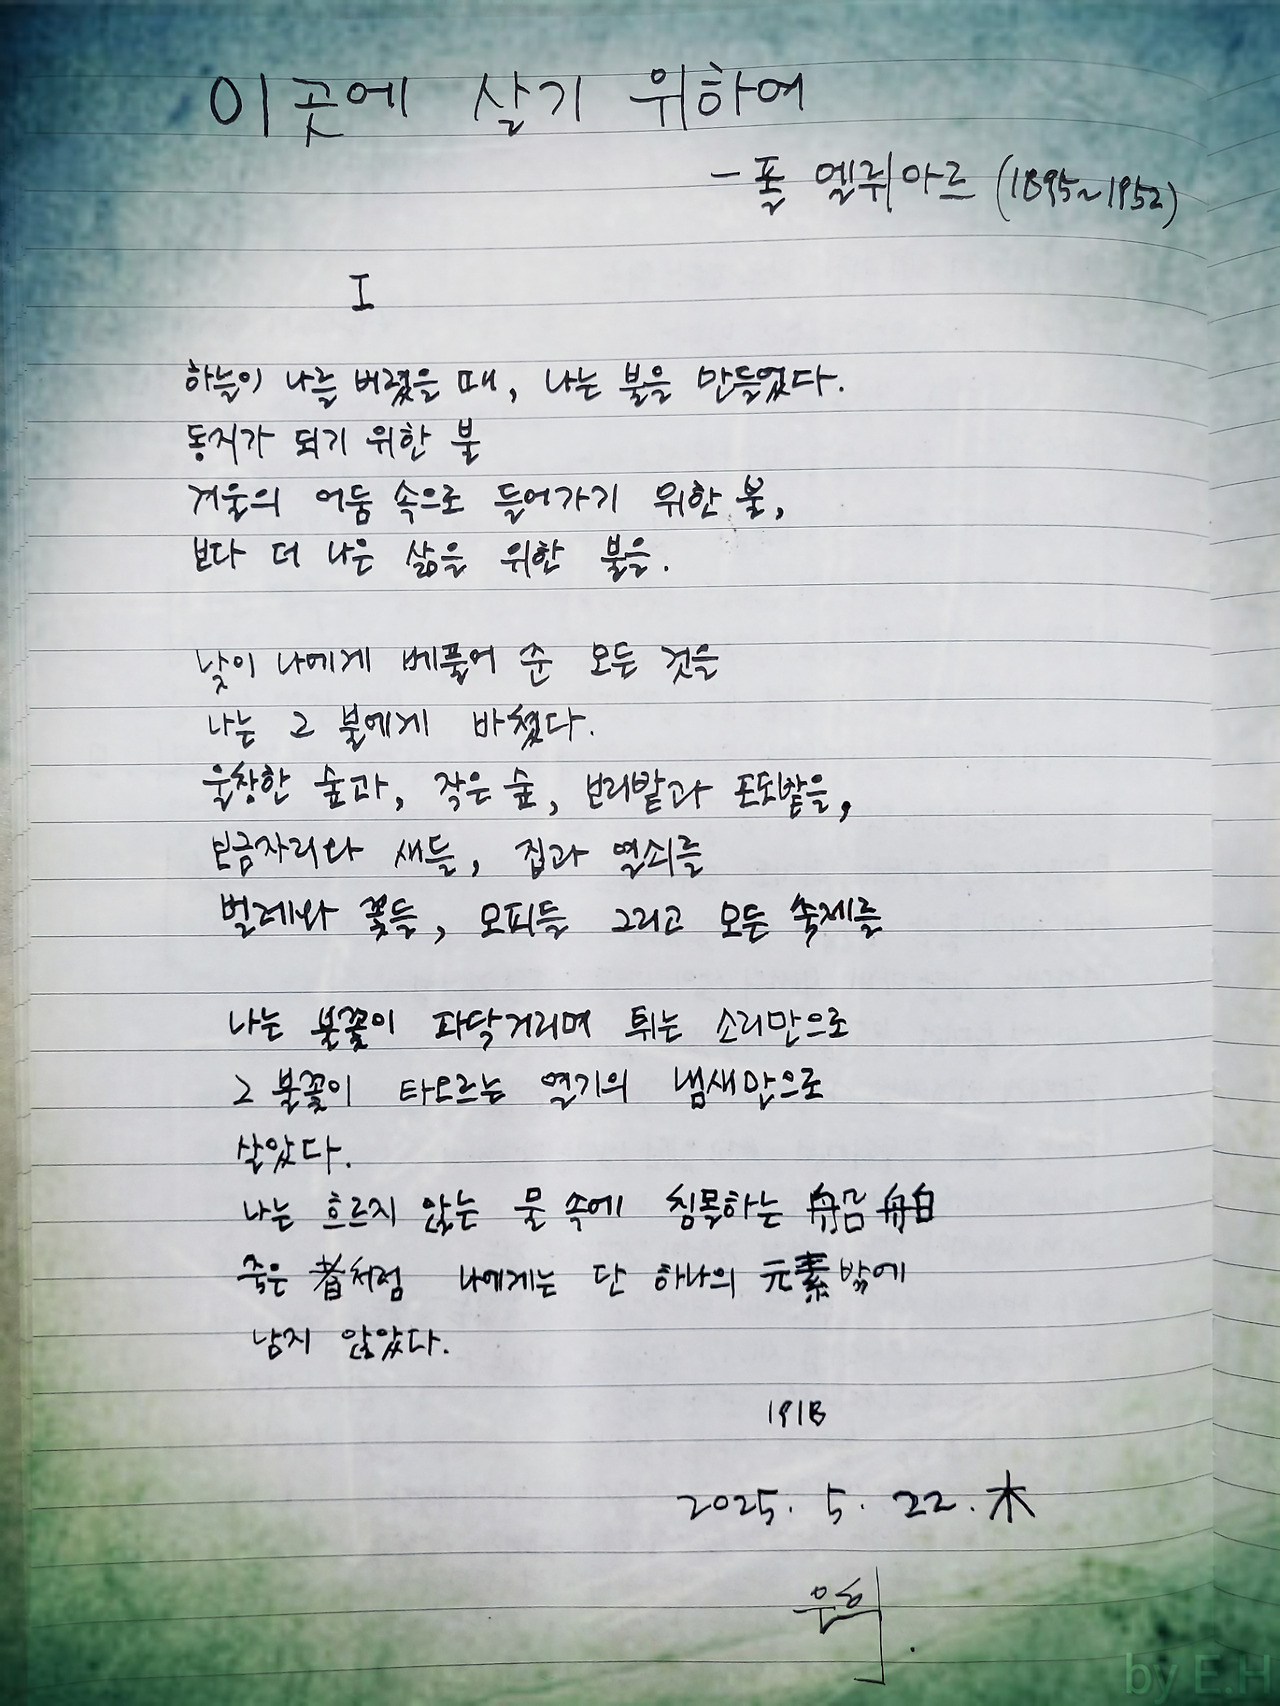 이곳에 살기 위하여
- 폴 엘뤼아르 (1895~1952)
I
하늘이 나를 버렸을 때, 나는 불을 만들었다.
동지가 되기 위한 불
겨울의 어둠 속으로 들어가기 위한 불,
보다 더 나은 삶을 위한 불을.
낮이 나에게 베풀어 준 모든 것을
나는 그 불에게 바쳤다.
울창한 숲과, 작은 숲, 보리밭과 포도밭을,
보금자리와 새들, 집과 열쇠를
벌레와 꽃들, 모피들 그리고 모든 축제를
나는 불꽃이 파닥거리며 튀는 소리만으로
그 불꽃이 타오르는 열기의 냄새만으로
살았다.
나는 흐르지 않는 물 속에 침몰하는 船舶
죽은 者처럼 나에게는 단 하나의 元素밖에
남지 않았다.
1918
2025. 5. 22. 木
은희.
by E.H